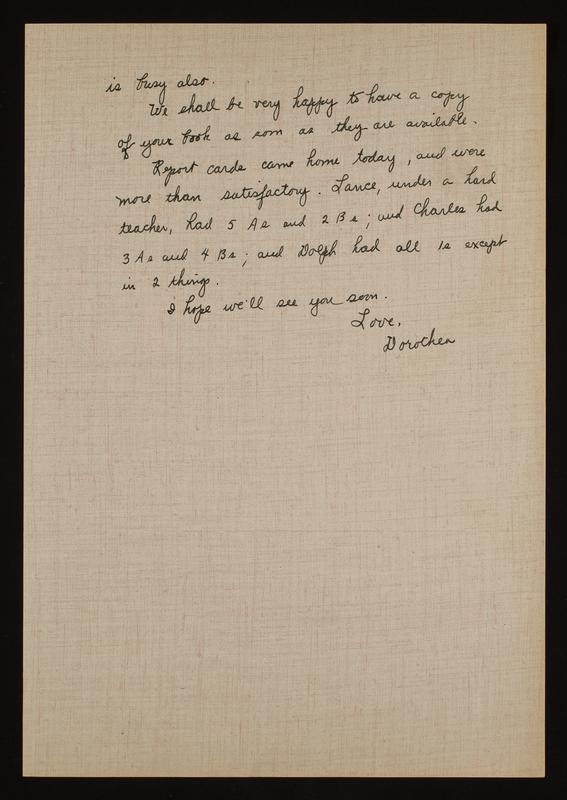 is busy also.
We shall be very happy to have a copy
of your book as soon as they are available.
Report cards came home today, and were
more than satisfactory. Lance, under a hard
teacher, had 5 As and 2 Bs; and Charles had
3 As and 4 Bs; and Dolph had all 1s except
in 2 things.
I hope we'll see you soon.
Love,
Dorothea